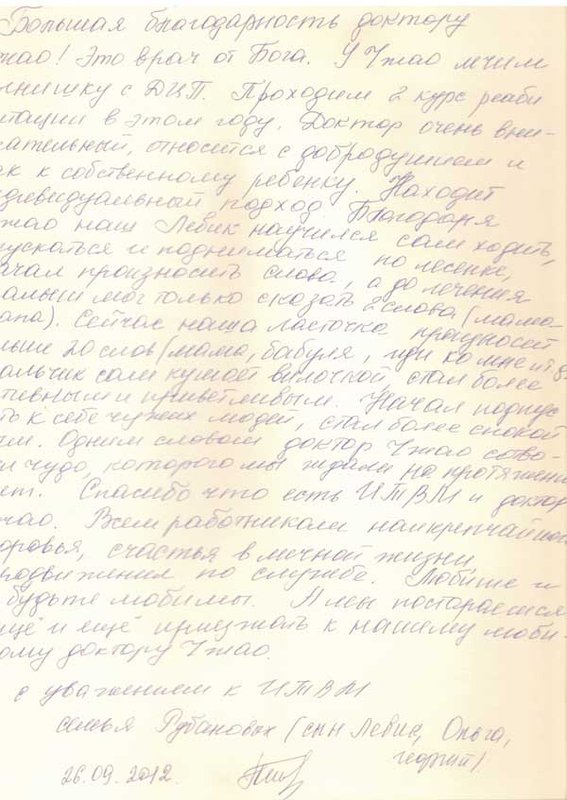 Большая благодарность доктору
жао! Это врач от Бога. У Чжао лечим
нишку с ДЦП. Проходим 2 курс реаби
тации в этом году. Доктор очень вни-
ательный, относится с добродушием и
ак к собственному ребенку. Находит
дивидуальный подход. Благодаря
жао наш Левик научился сам ходить,
ускаться и подниматься по лесенке,
ачал произносить слова, а до лечения
алыш мог только сказать 2 слова (мама-
апа). Сейчас наша ласточка произносит
льше 20 слов (мама, бабуля, иди ко мне
альчик сам кушает вилочкой, стал более
тивным и приветливым. Начал подпус
ть к себе чужих людей, стал более спокой
ым. Одним словом доктор Чжао сотво-
л чудо, которого мы ждали на протяжении
ет. Спасибо что есть ИТВМ и доктор
жао. Всем работникам наикрепчайшего
оровья, счастья в личной жизни,
родвижения по службе. Любите и
будьте любимы. А мы постараемся
ещё и ещё приезжать к нашему люби-
ому доктору Чжао.
с уважением к ИТВМ
семья Рубановых (сын Левис, Ольга,
Георгий)
26.09.2012.